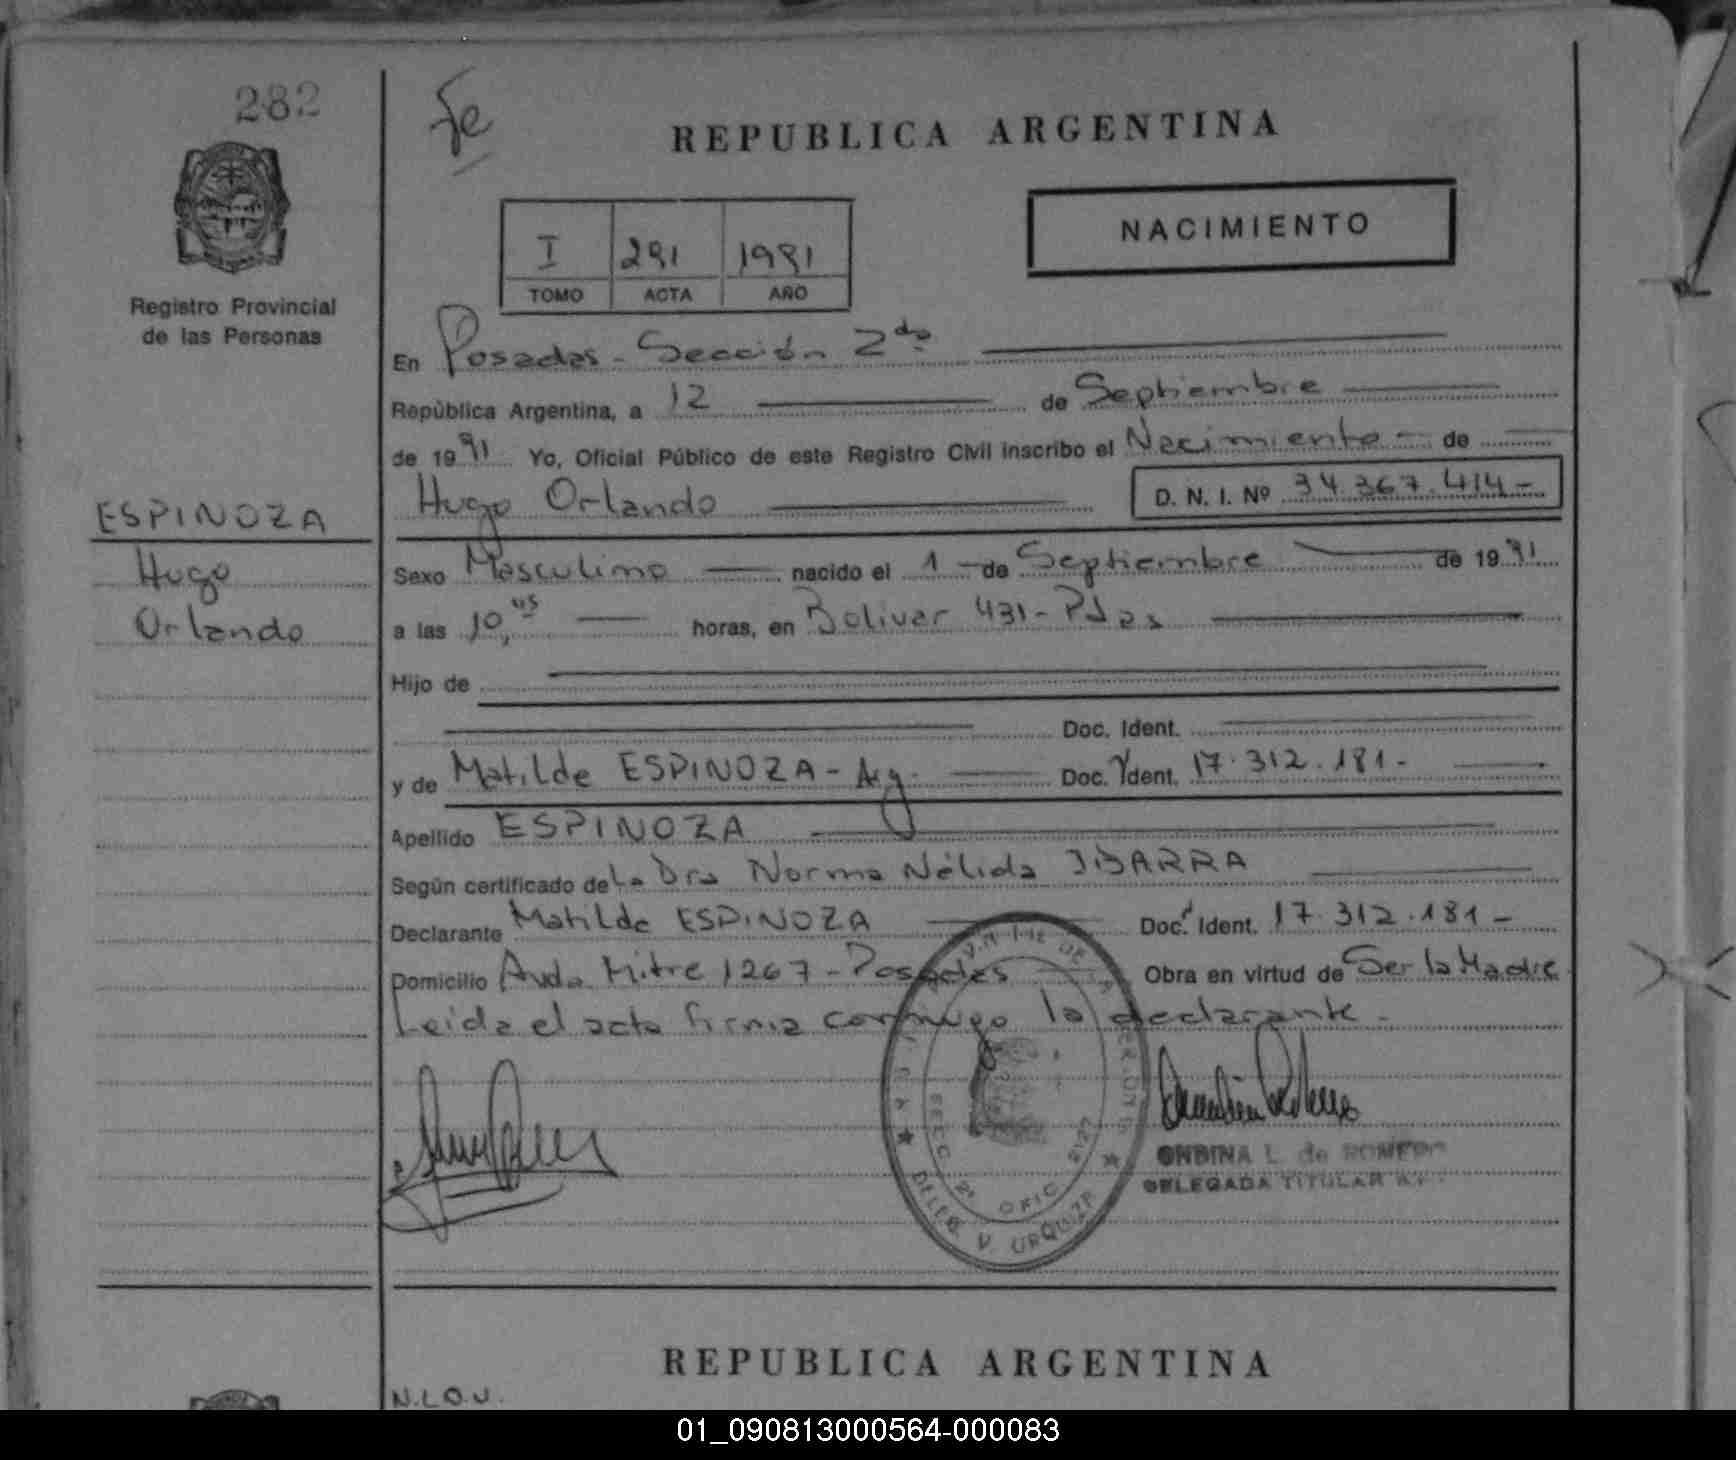 282
Fe
REPUBLICA ARGENTINA
NACIMIENTO
I 291 1991
TOMO ACTA AÑO
Registro Provincial
de las Personas
En Posadas - Sección 2da
República Argentina, a 12 de Septiembre
de 1991 Yo, Oficial Público de este Registro Civil inscribo el Nacimiento - de
Hugo Orlando D. N. I. Nº 34.367.414-
ESPINOZA
Hugo
Orlando
Sexo Masculino nacido el 1 - de Septiembre de 1991
a las 10,45 horas, en Bolivar 431 - Pdas
Hijo de
Doc. Ident.
y de Matilde ESPINOZA - Arg. Doc. Ident. 17.312.181-
Apellido ESPINOZA
Según certificado de La Dra Norma Nélida IBARRA
Declarante Matilde ESPINOZA Doc. Ident. 17.312.181-
Domicilio Avda Mitre 1267 - Posadas Obra en virtud de Ser la Madre
Leida el acta firma conmigo la declarante.
SECC 2ª OFIC 2127
DELEG. V. URQUIZA
ONDINA L. de ROMERO
DELEGADA TITULAR
REPUBLICA ARGENTINA
N.L.O.V.
01_090813000564-000083